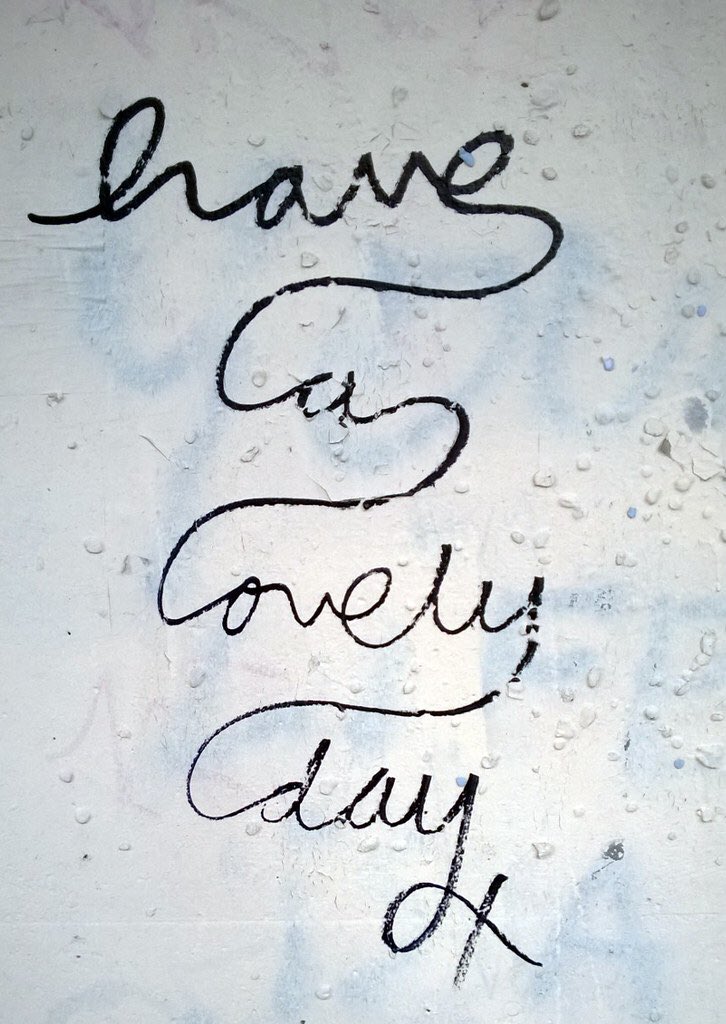 have
a
lovely
day x